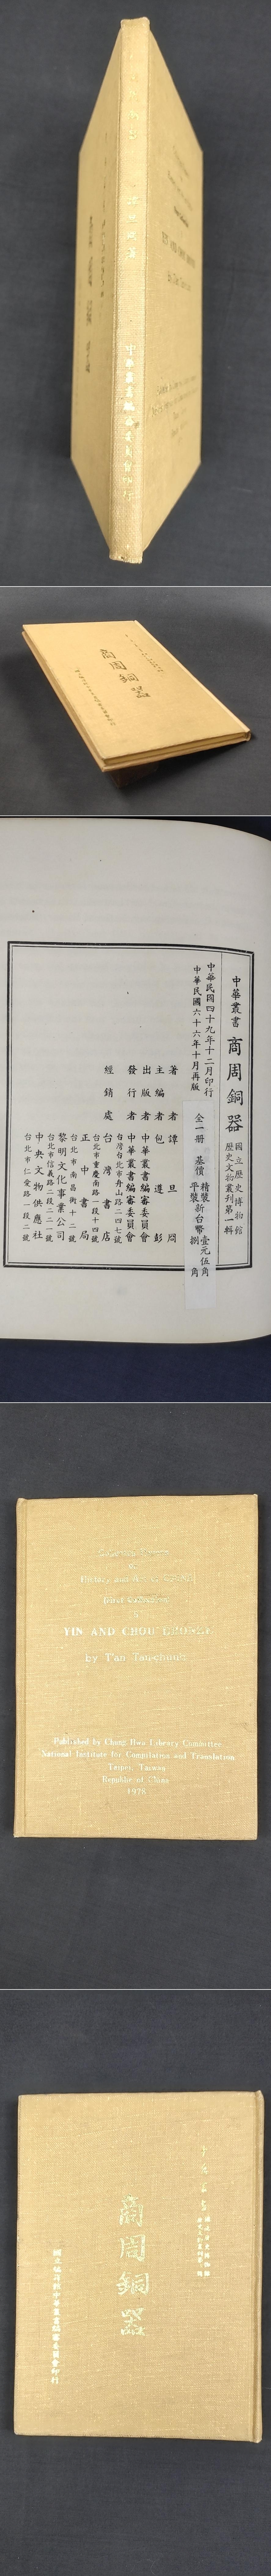 譚旦冏著
中華叢書編審委員會印行
商周銅器
中華叢書
商周銅器
國立歷史博物館
歷史文物叢刊第一輯
中華民國四十九年十二月印行
中華民國六十六年十月再版
全一册 基價
精裝新台幣壹元伍角
平裝 捌角
著者 譚旦冏
主編者 包遵彭
出版者 中華叢書編審委員會
發行者 中華叢書編審委員會
台灣台北市舟山路二四七號
經銷處 台灣書店
台北市重慶南路一段十四號
正中書局
台北市南昌街十二號
黎明文化事業公司
台北市信義路二段二二一號
中央文物供應社
台北市仁愛路一段二號
of
History and Art of
First Collection
YIN AND CHOU
by T'an Tan-chiung
Published by Chung Hwa Library Committee
National Institute for Compilation and Translation
Taipei, Taiwan
Republic of China
1978
中華叢書
國立歷史博物館
商周銅器
國立編譯館中華叢書編審委員會印行